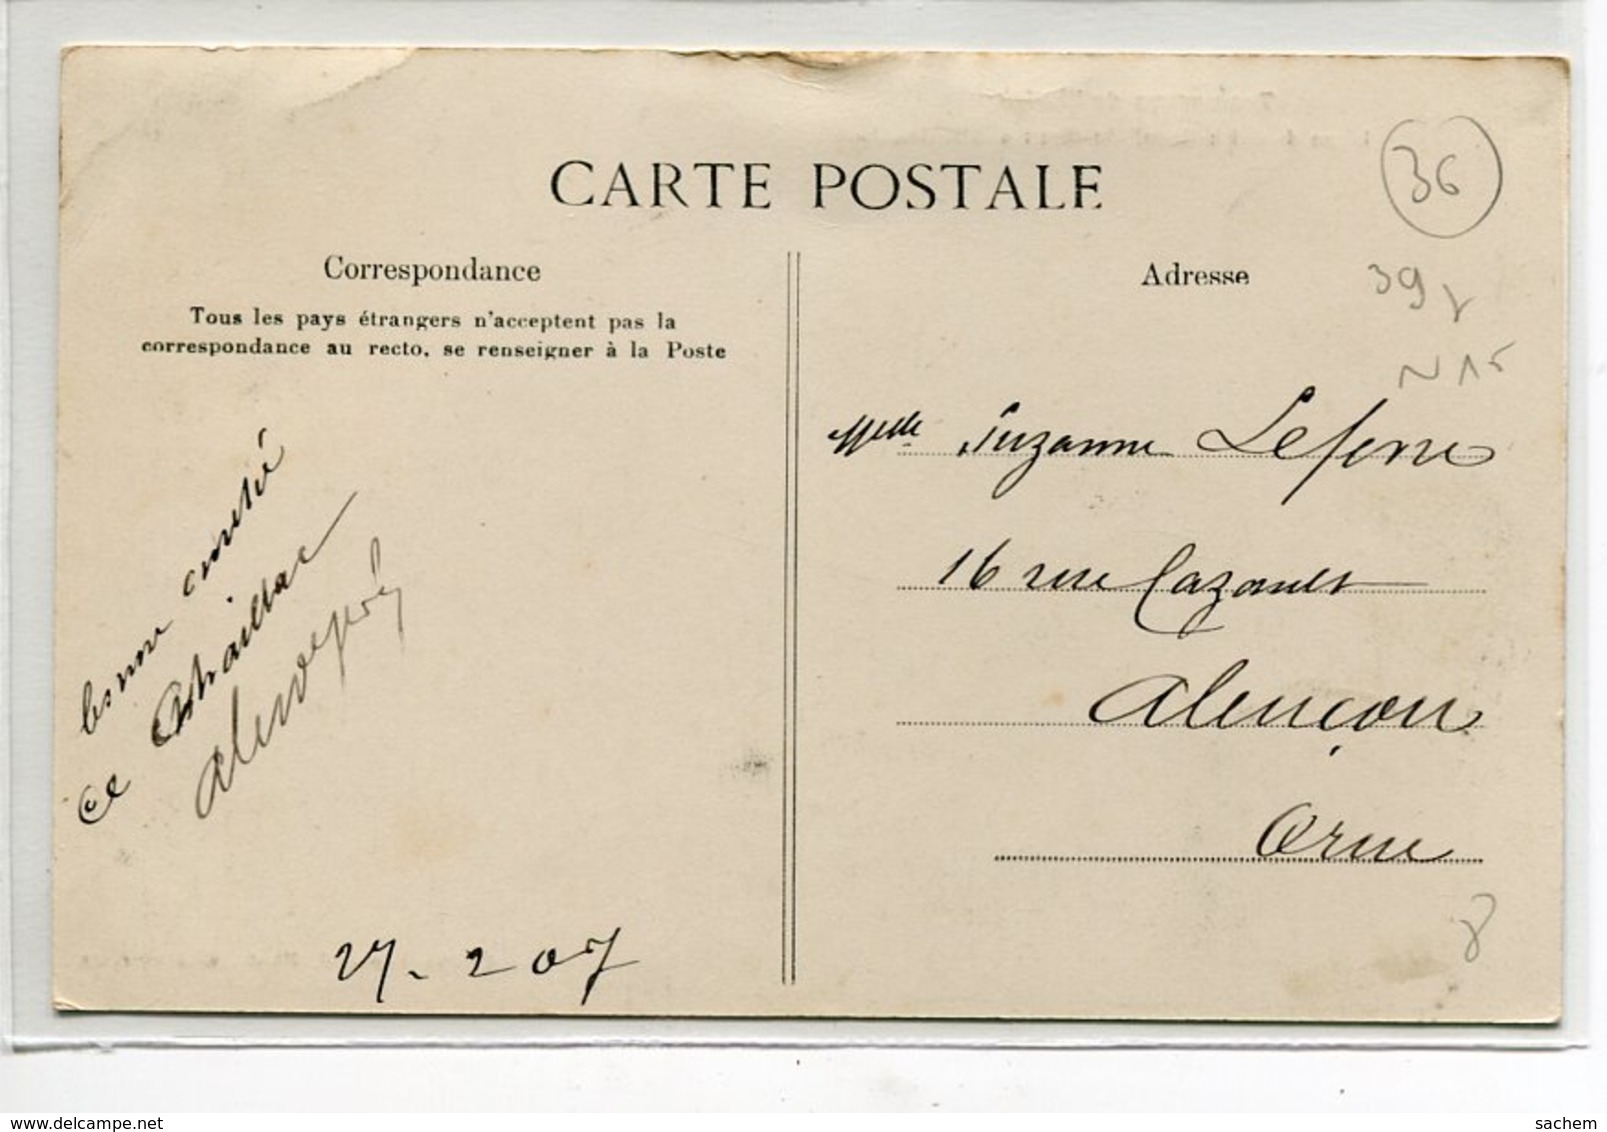 CARTE POSTALE
36
Correspondance
Adresse
39
Tous les pays étrangers n'acceptent pas la
correspondance au recto, se renseigner à la Poste
N 15
Melle Suzanne Lefevre
16 rue Cazault
Alençon
Orne
bonne amitié
27 - 2 07
8
delcampe.net
sachem